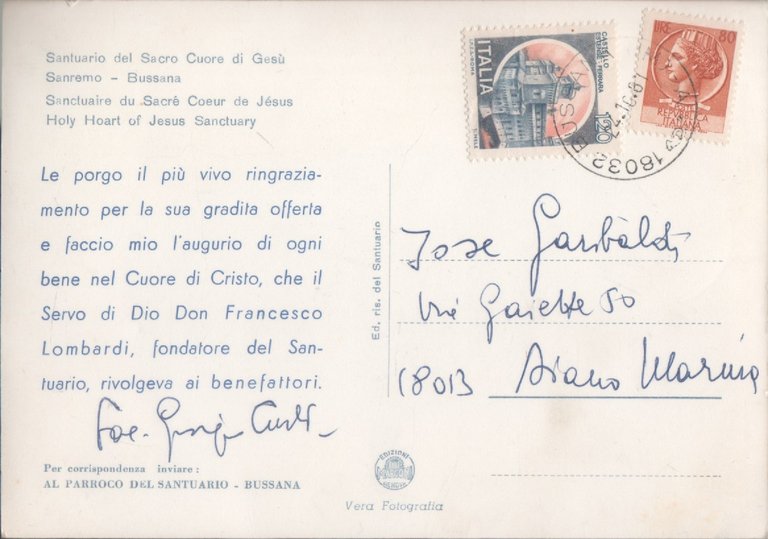 Santuario del Sacro Cuore di Gesù
Sanremo – Bussana
Sanctuaire du Sacré Coeur de Jésus
Holy Hoart of Jesus Sanctuary
Le porgo il più vivo ringrazia-
mento per la sua gradita offerta
e faccio mio l'augurio di ogni
bene nel Cuore di Cristo, che il
Servo di Dio Don Francesco
Lombardi, fondatore del San-
tuario, rivolgeva ai benefattori.
Per corrispondenza inviare :
AL PARROCO DEL SANTUARIO - BUSSANA
Ed. ris. del Santuario
EDIZIONI
GENOVA
Vera Fotografia
CASTELLO
ESTENSE FERRARA
ITALIA
120
LIRE 80
REPVBBLICA
ITALIANA
18032
Jose Garibaldi
Via Gaiette 50
18013 Diano Marina